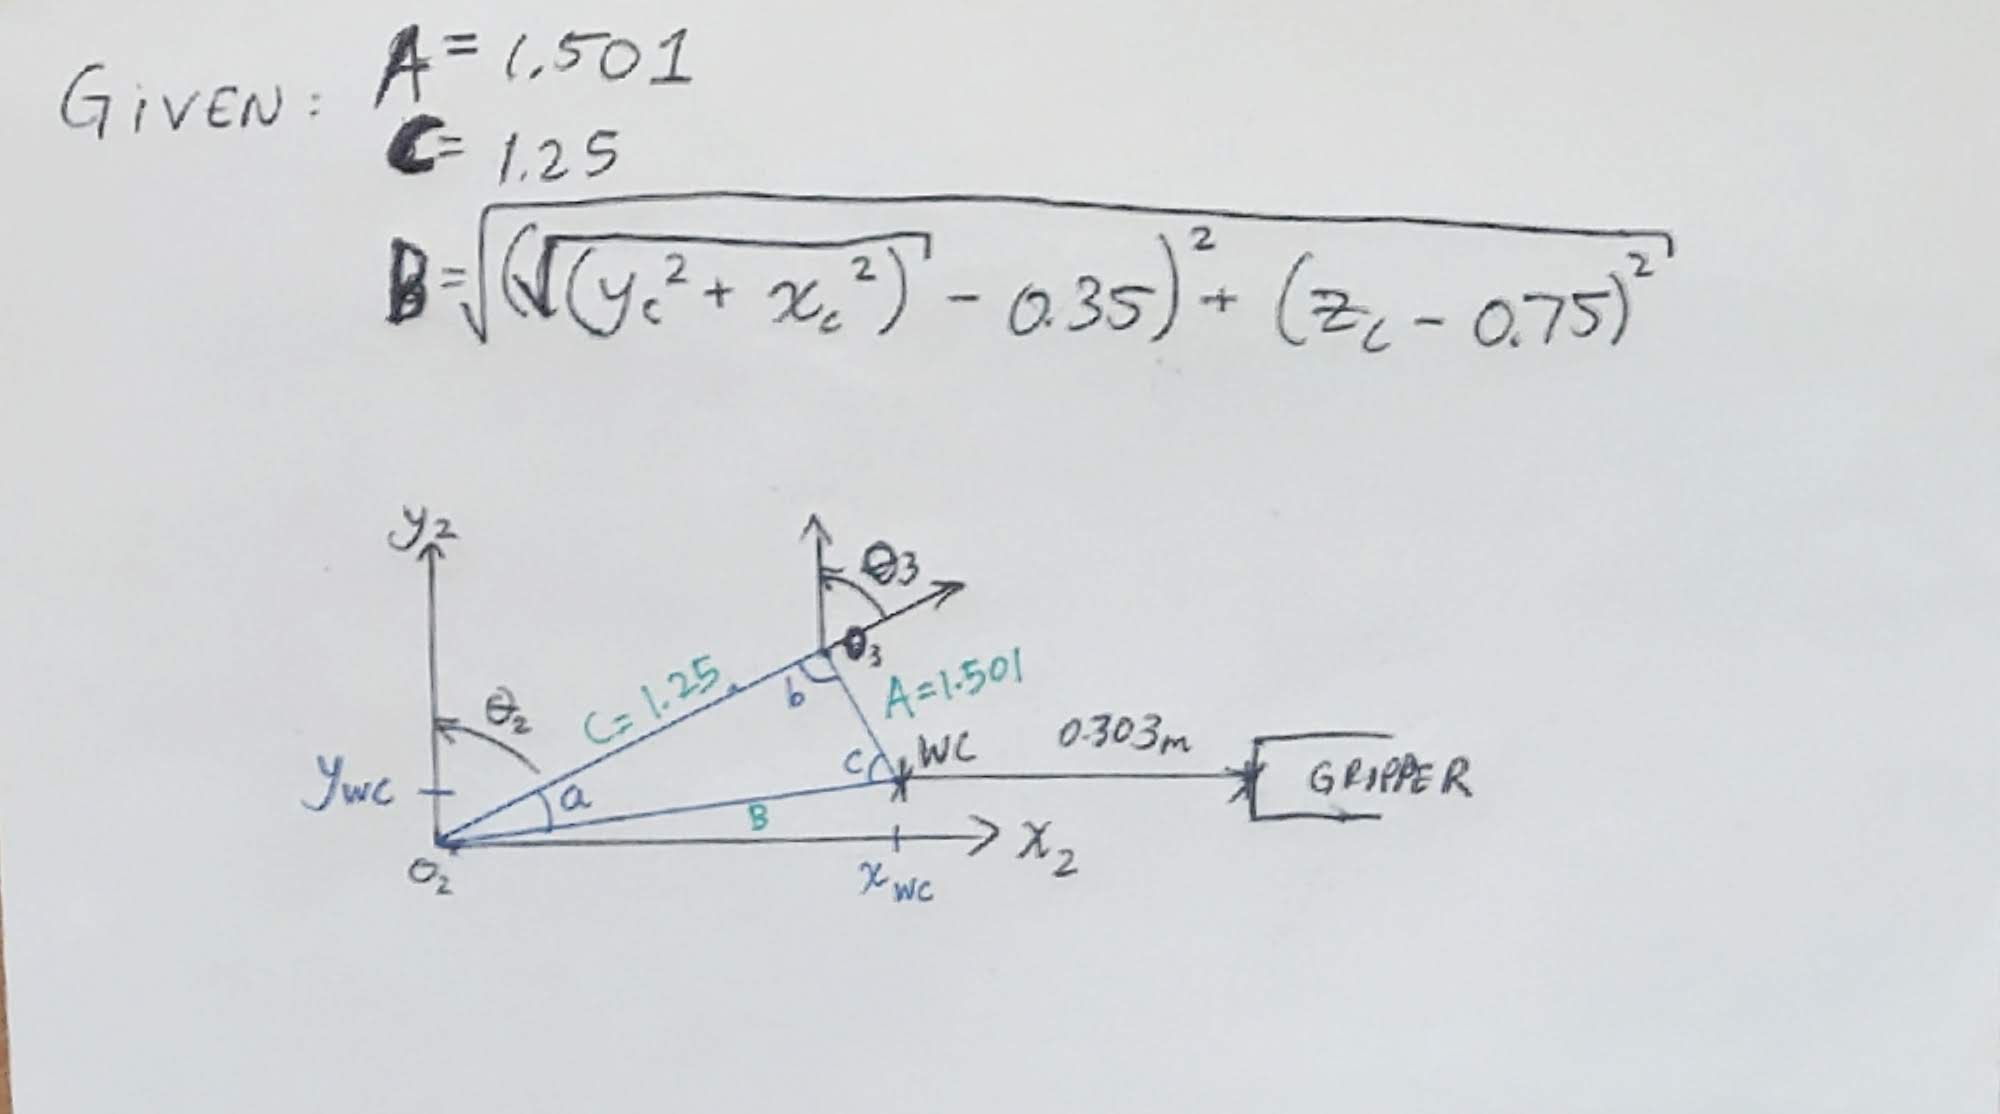 GiVEN: A = 1.501
C = 1.25
B = √((√(y_c² + x_c²) - 0.35)² + (z_c - 0.75)²)
y₂
θ₃
θ₃
C = 1.25
b
A = 1.501
θ₂
0.303m
c
WC
GRIPPER
y_WC
a
B
O₂
x_WC
X₂